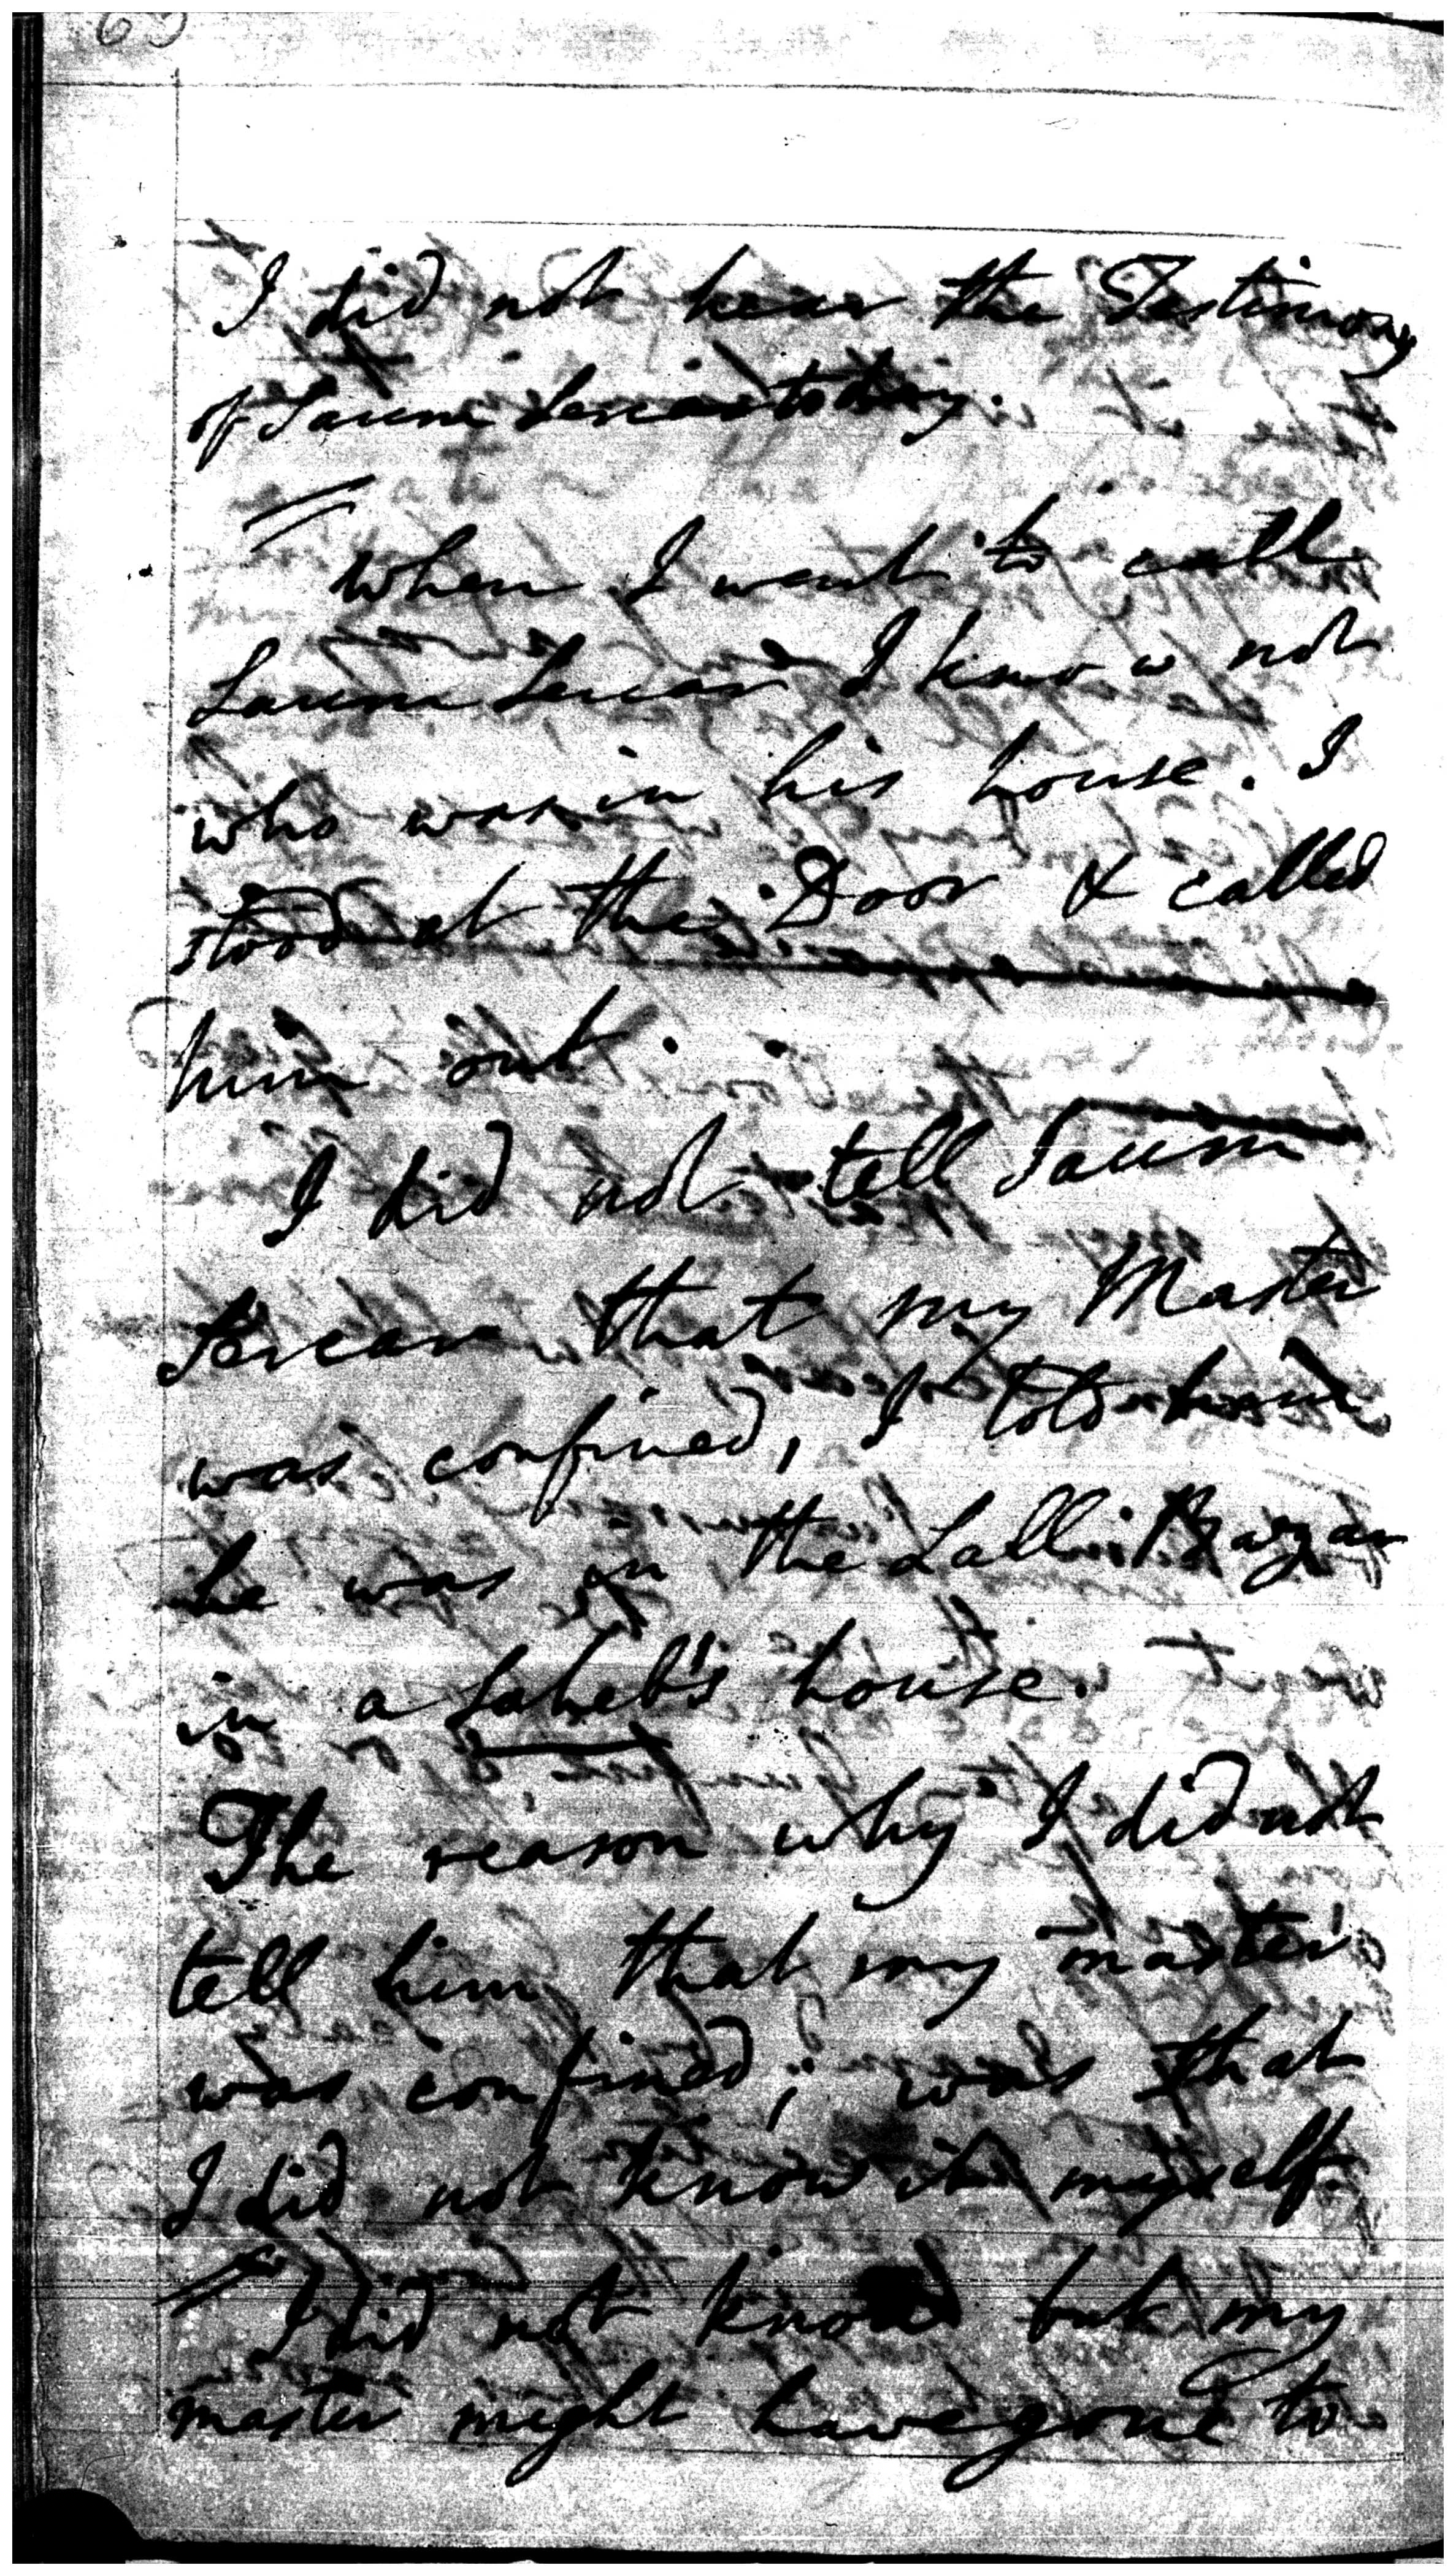 I did not hear the Testimony
of Saum Sercar to day.
When I went to call
Saum Sercar I know not
who was in his house. I
stood at the Door & called
him out.
I did not tell Saum
Sercar that my Master
was confined, I told him
he was in the Lall Bazar
in a Saheb's house.
The reason why I did not
tell him that my master
was confined; was that
I did not know it myself.
I did not know but my
master might have gone to